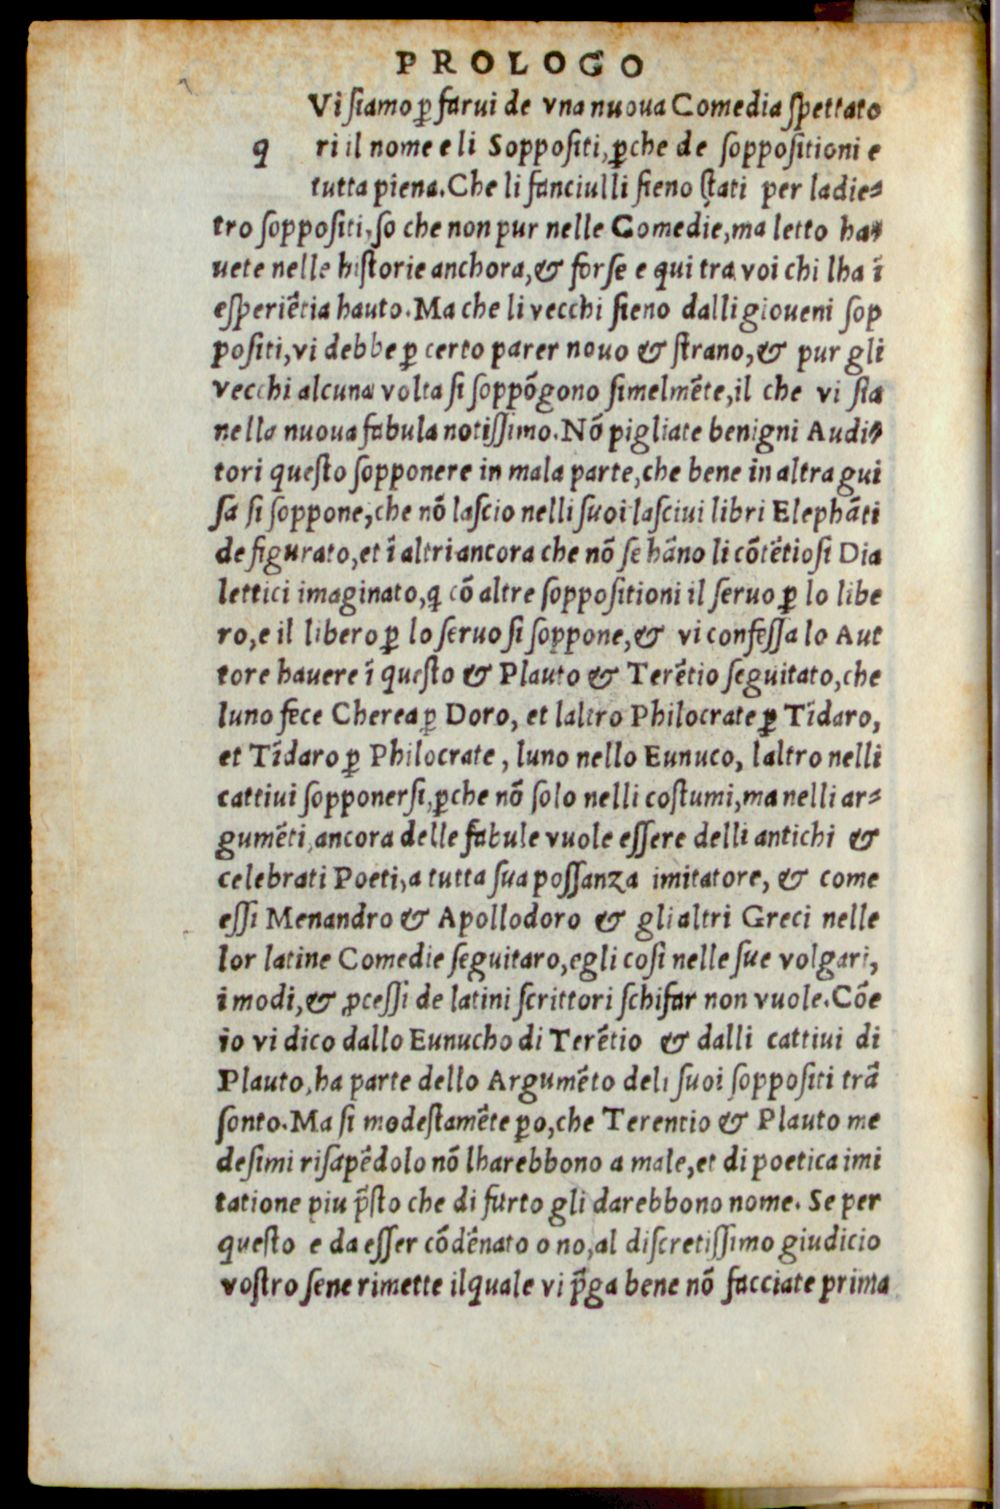 PROLOGO
Vi siamo ꝑ farui de vna nuoua Comedia spettato
q ri il nome e li Soppositi, ꝑche de soppositioni e
tutta piena. Che li fanciulli sieno stati per ladie-
tro soppositi, so che non pur nelle Comedie, ma letto ha-
uete nelle historie anchora, & forse e qui tra voi chi lha ī
esperiētia hauto. Ma che li vecchi sieno dalli gioueni sop
positi, vi debbe ꝑ certo parer nouo & strano, & pur gli
vecchi alcuna volta si soppōgono simelmēte, il che vi sia
nella nuoua fabula notissimo. Nō pigliate benigni Audi-
tori questo sopponere in mala parte, che bene in altra gui
sa si soppone, che nō lascio nelli suoi lasciui libri Elephāti
de figurato, et ī altri ancora che nō se hāno li cōtētiosi Dia
lettici imaginato, q cō altre soppositioni il seruo ꝑ lo libe
ro, e il libero ꝑ lo seruo si soppone, & vi confessa lo Aut
tore hauere ī questo & Plauto & Terētio seguitato, che
luno fece Cherea ꝑ Doro, et laltro Philocrate ꝑ Tīdaro,
et Tīdaro ꝑ Philocrate, luno nello Eunuco, laltro nelli
cattiui sopponersi, ꝑche nō solo nelli costumi, ma nelli ar-
gumēti, ancora delle fabule vuole essere delli antichi &
celebrati Poeti, a tutta sua possanza imitatore, & come
essi Menandro & Apollodoro & gli altri Greci nelle
lor latine Comedie seguitaro, egli cosi nelle sue volgari,
i modi, & ꝓcessi de latini scrittori schifar non vuole. Cōe
io vi dico dallo Eunucho di Terētio & dalli cattiui di
Plauto, ha parte dello Argumēto deli suoi soppositi trā
sonto. Ma si modestamēte ꝑo, che Terentio & Plauto me
desimi risapēdolo nō lharebbono a male, et di poetica imi
tatione piu p̄sto che di furto gli darebbono nome. Se per
questo e da esser cōdēnato o no, al discretissimo giudicio
vostro sene rimette ilquale vi p̄ga bene nō facciate prima